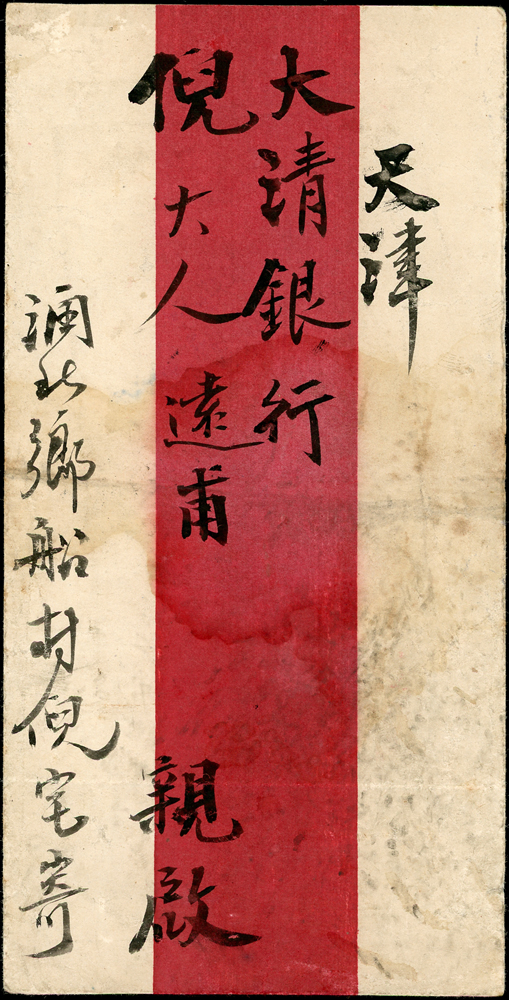 天津
大清銀行
倪大人遠甫 親啟
北鄉船村倪宅寄